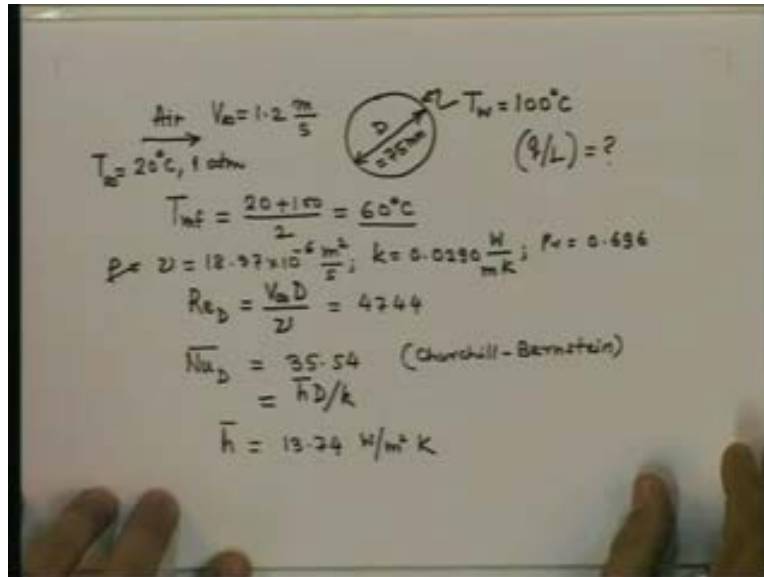 Air V∞ = 1.2 m/s
D = 75 mm
Tw = 100°C
T∞ = 20°C, 1 atm
(q/L) = ?
Tmf = (20+100)/2 = 60°C
ν = 18.97×10⁻⁶ m²/s; k = 0.0290 W/mK; Pr = 0.696
Re_D = V∞D/ν = 4744
N̄u_D = 35.54 (Churchill-Bernstein)
= h̄D/k
h̄ = 13.74 W/m² K